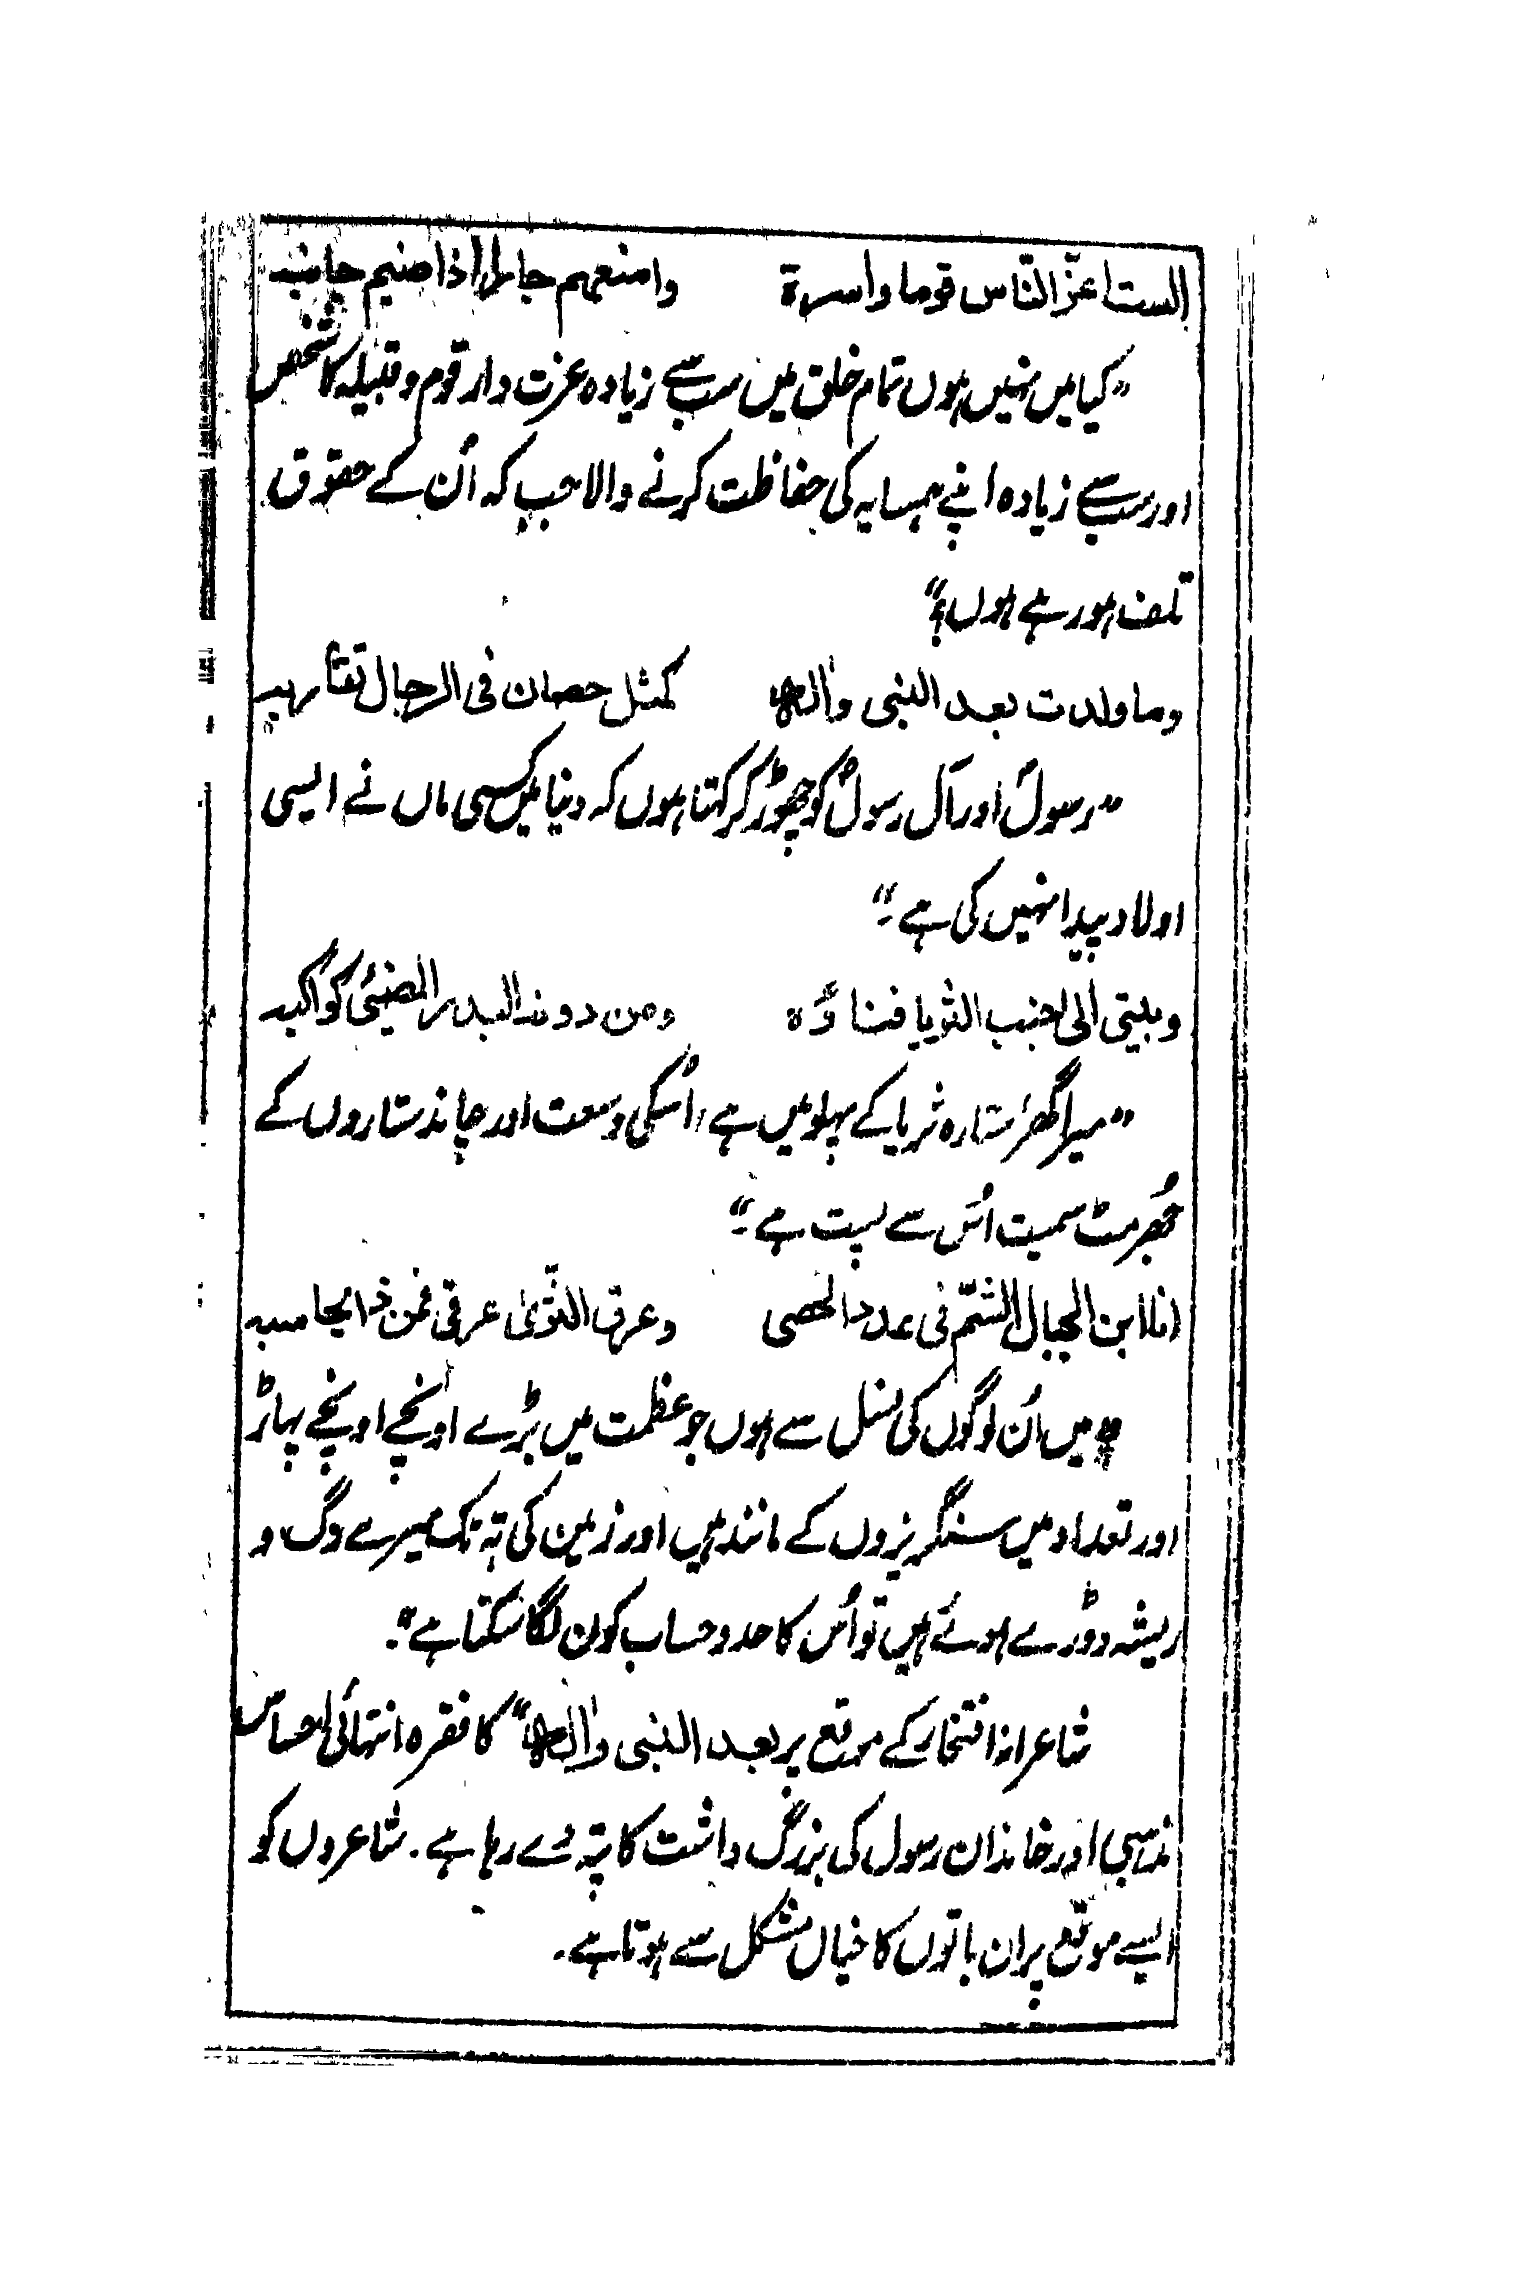 الست اعزّ النّاس قوما واسرة وامنعهم جارا اذا ضیم جانبه
”کیا میں نہیں ہوں تمام خلق میں سب سے زیادہ عزت دار قوم و قبیلہ کا شخص
اور سب سے زیادہ اپنے ہمسایہ کی حفاظت کرنے والا جب کہ اُن کے حقوق
تلف ہو رہے ہوں؟“
وما ولدت بعد النبی واٰلہ کمثل حصان فی الرجال تقاربه
”رسولؐ اور آل رسولؐ کو چھوڑ کر کہتا ہوں کہ دنیا میں کسی ماں نے ایسی
اولاد پیدا نہیں کی ہے۔“
وبیتی الی جنب الثریا فناؤہ ومن دونه البدر المضیئی کواکبه
”میرا گھر ستارہ ثریا کے پہلو میں ہے، اُسکی وسعت اور چاند ستاروں کے
جُھرمٹ سمیت اُس سے پست ہے۔“
انا ابن الجبال الشمّ فی عدد الحصی وعرق الثریٰ عرقی فمن ذا یحاسبه
”میں اُن لوگوں کی نسل سے ہوں جو عظمت میں بڑے اونچے اونچے پہاڑ
اور تعداد میں سنگریزوں کے مانند ہیں اور زمین کی تہ تک میرے رگ و
ریشہ دوڑے ہوئے ہیں تو اُس کا حد و حساب کون لگا سکتا ہے“۔
شاعرانہ افتخار کے موقع پر بعد النبی واٰلہ“ کا فقرہ انتہائی احساس
مذہبی اور خاندان رسول کی بزرگ داشت کا پتہ دے رہا ہے۔ شاعروں کو
ایسے موقع پر ان باتوں کا خیال مشکل سے ہوتا ہے۔